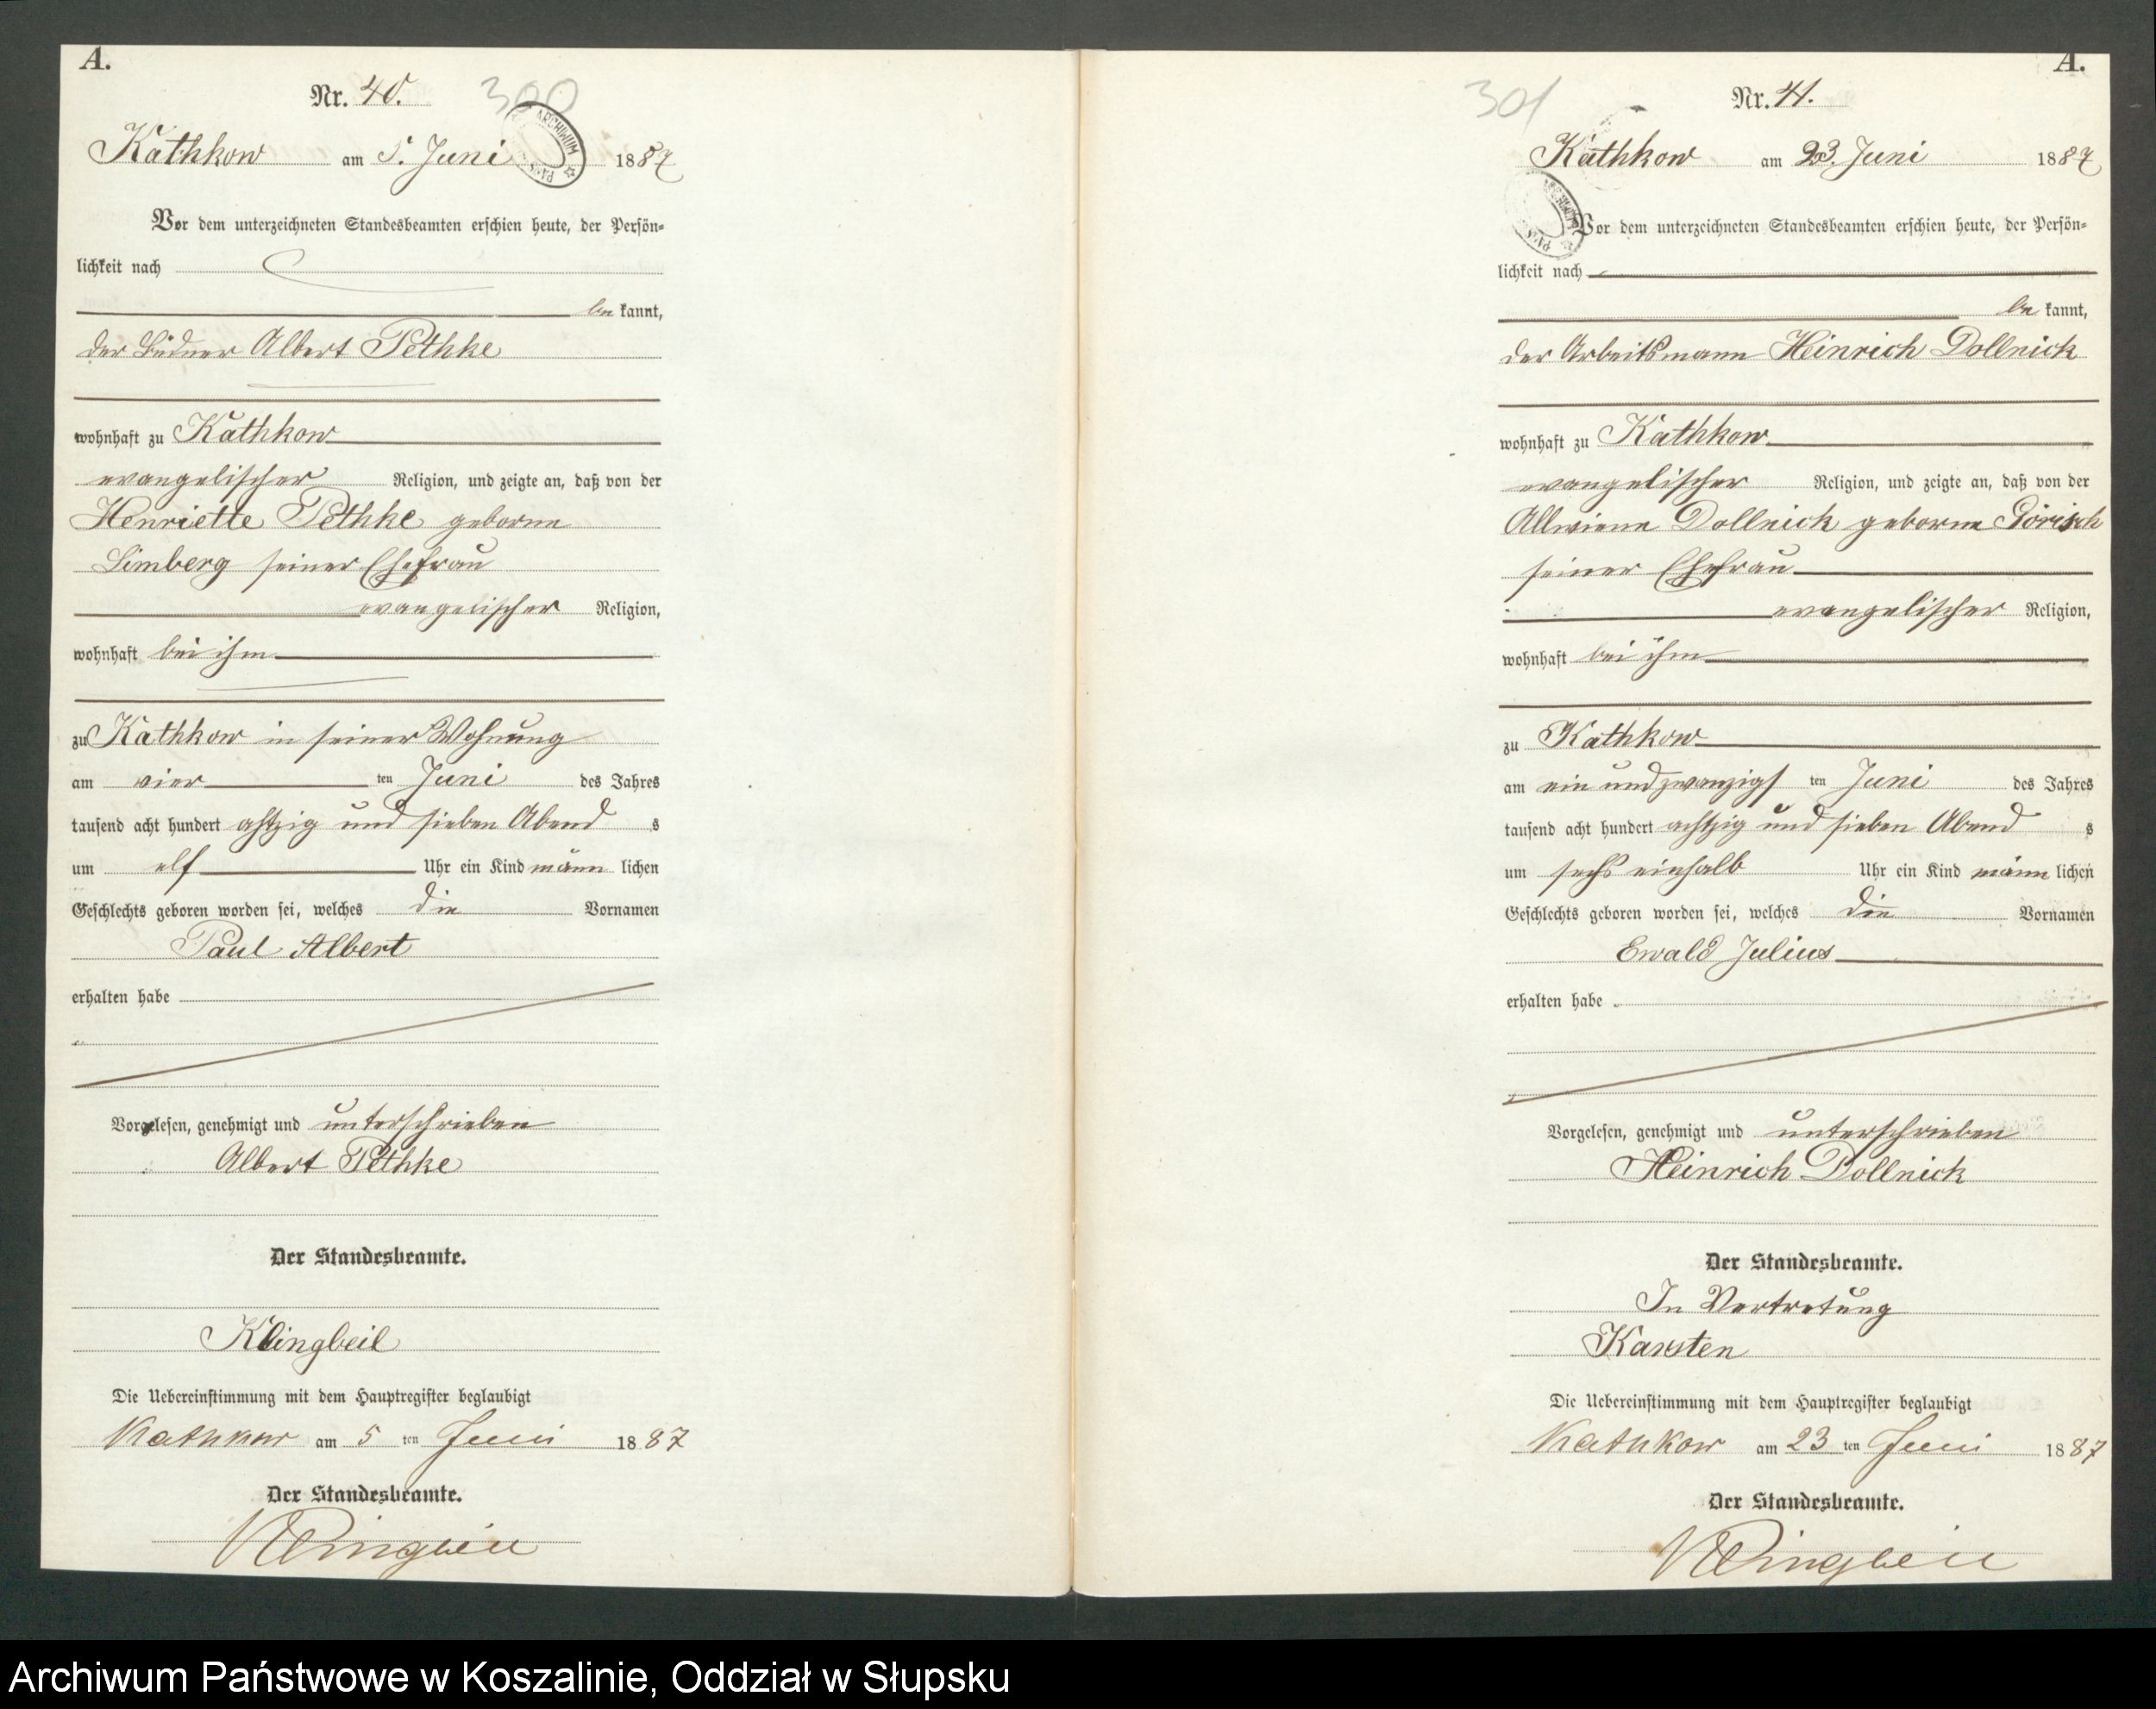 A.
Nr. 40.
300
Kathkow am 5. Juni 1887
ARCHIWUM
Vor dem unterzeichneten Standesbeamten erschien heute, der Persön-
lichkeit nach
be kannt,
der Büdner Albert Pethke
wohnhaft zu Kathkow
evangelischer Religion, und zeigte an, daß von der
Henriette Pethke geborne
Limberg seiner Ehefrau
evangelischer Religion,
wohnhaft bei ihm
zu Kathkow in seiner Wohnung
am vier ten Juni des Jahres
tausend acht hundert achtzig und sieben Abend s
um elf Uhr ein Kind männ lichen
Geschlechts geboren worden sei, welches die Vornamen
Paul Albert
erhalten habe
Vorgelesen, genehmigt und unterschrieben
Albert Pethke
Der Standesbeamte.
Klingbeil
Die Uebereinstimmung mit dem Hauptregister beglaubigt
Kathkow am 5 ten Juni 1887
Der Standesbeamte.
Klingbeil
A.
Nr. 41.
301
Kathkow am 23. Juni 1887
Vor dem unterzeichneten Standesbeamten erschien heute, der Persön-
lichkeit nach
be kannt,
der Arbeitsmann Heinrich Dollnick
wohnhaft zu Kathkow
evangelischer Religion, und zeigte an, daß von der
Allwiene Dollnick geborne Görisch
seiner Ehefrau
evangelischer Religion,
wohnhaft bei ihm
zu Kathkow
am ein und zwanzigs ten Juni des Jahres
tausend acht hundert achtzig und sieben Abend s
um sechs einhalb Uhr ein Kind männ lichen
Geschlechts geboren worden sei, welches die Vornamen
Ewald Julius
erhalten habe
Vorgelesen, genehmigt und unterschrieben
Heinrich Dollnick
Der Standesbeamte.
In Vertretung
Karsten
Die Uebereinstimmung mit dem Hauptregister beglaubigt
Kathkow am 23 ten Juni 1887
Der Standesbeamte.
Klingbeil
Archiwum Państwowe w Koszalinie, Oddział w Słupsku